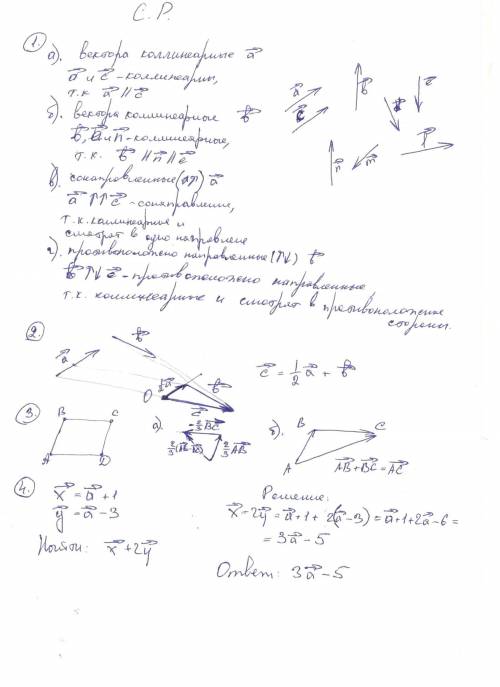 С.Р.
1.
а). вектора коллинеарные a⃗
a⃗ и c⃗ - коллинеарны,
т.к a⃗ || c⃗
б). вектора коллинеарные b⃗
-коллинеарные,
т.к. b⃗ || n⃗ || e⃗
в). сонаправленные (↑↑) a⃗
a⃗ ↑↑ c⃗ - сонаправление,
т.к. коллинеарные и
смотрят в одно направлене
г). противоположено направленные (↑↓) b⃗
b⃗ ↑↓ e⃗ - противоположено направленные
т.к. коллинеарные и смотрят в противоположные
стороны.
a⃗ b⃗ e⃗
c⃗
n⃗ m⃗
2.
a⃗ b⃗
O ½a⃗ b⃗
c⃗
c⃗ = ½ a⃗ + b⃗
3.
B C
A D
а).
-⅔BC⃗
⅔(AB⃗-BC⃗) ⅔AB⃗
б).
B C
A
AB⃗+BC⃗=AC⃗
4.
x⃗ = a⃗ + 1
y⃗ = a⃗ - 3
Найти: x⃗ + 2y⃗
Решение:
x⃗ - 2y⃗ = a⃗+1 + 2(a⃗-3) = a⃗+1+2a⃗-6 =
= 3a⃗ - 5
Ответ: 3a⃗ - 5